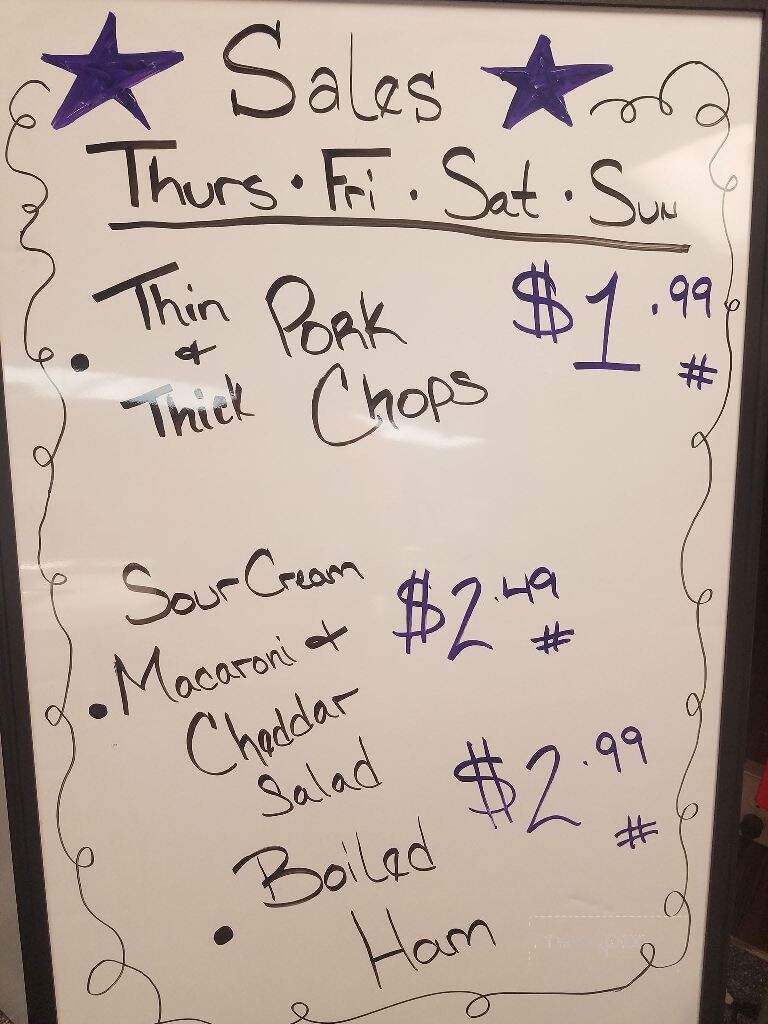 Sales
Thurs • Fri • Sat • Sun
• Thin & Thick Pork Chops $1.99 #
Sour Cream $2.49 #
• Macaroni &
Cheddar
Salad
$2.99 #
• Boiled
Ham